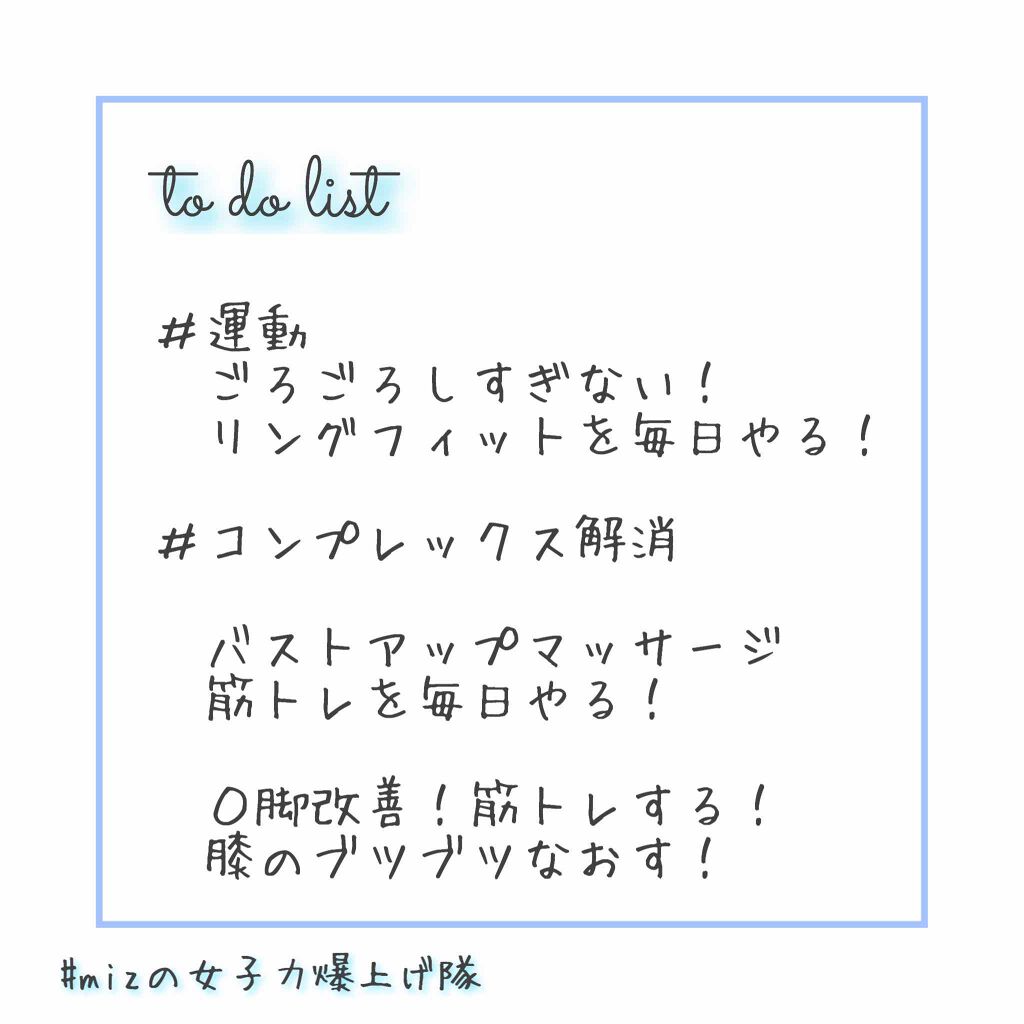 to do list
#運動
ごろごろしすぎない！
リングフィットを毎日やる！
#コンプレックス解消
バストアップマッサージ
筋トレを毎日やる！
O脚改善！筋トレする！
膝のブツブツなおす！
#mizの女子力爆上げ隊